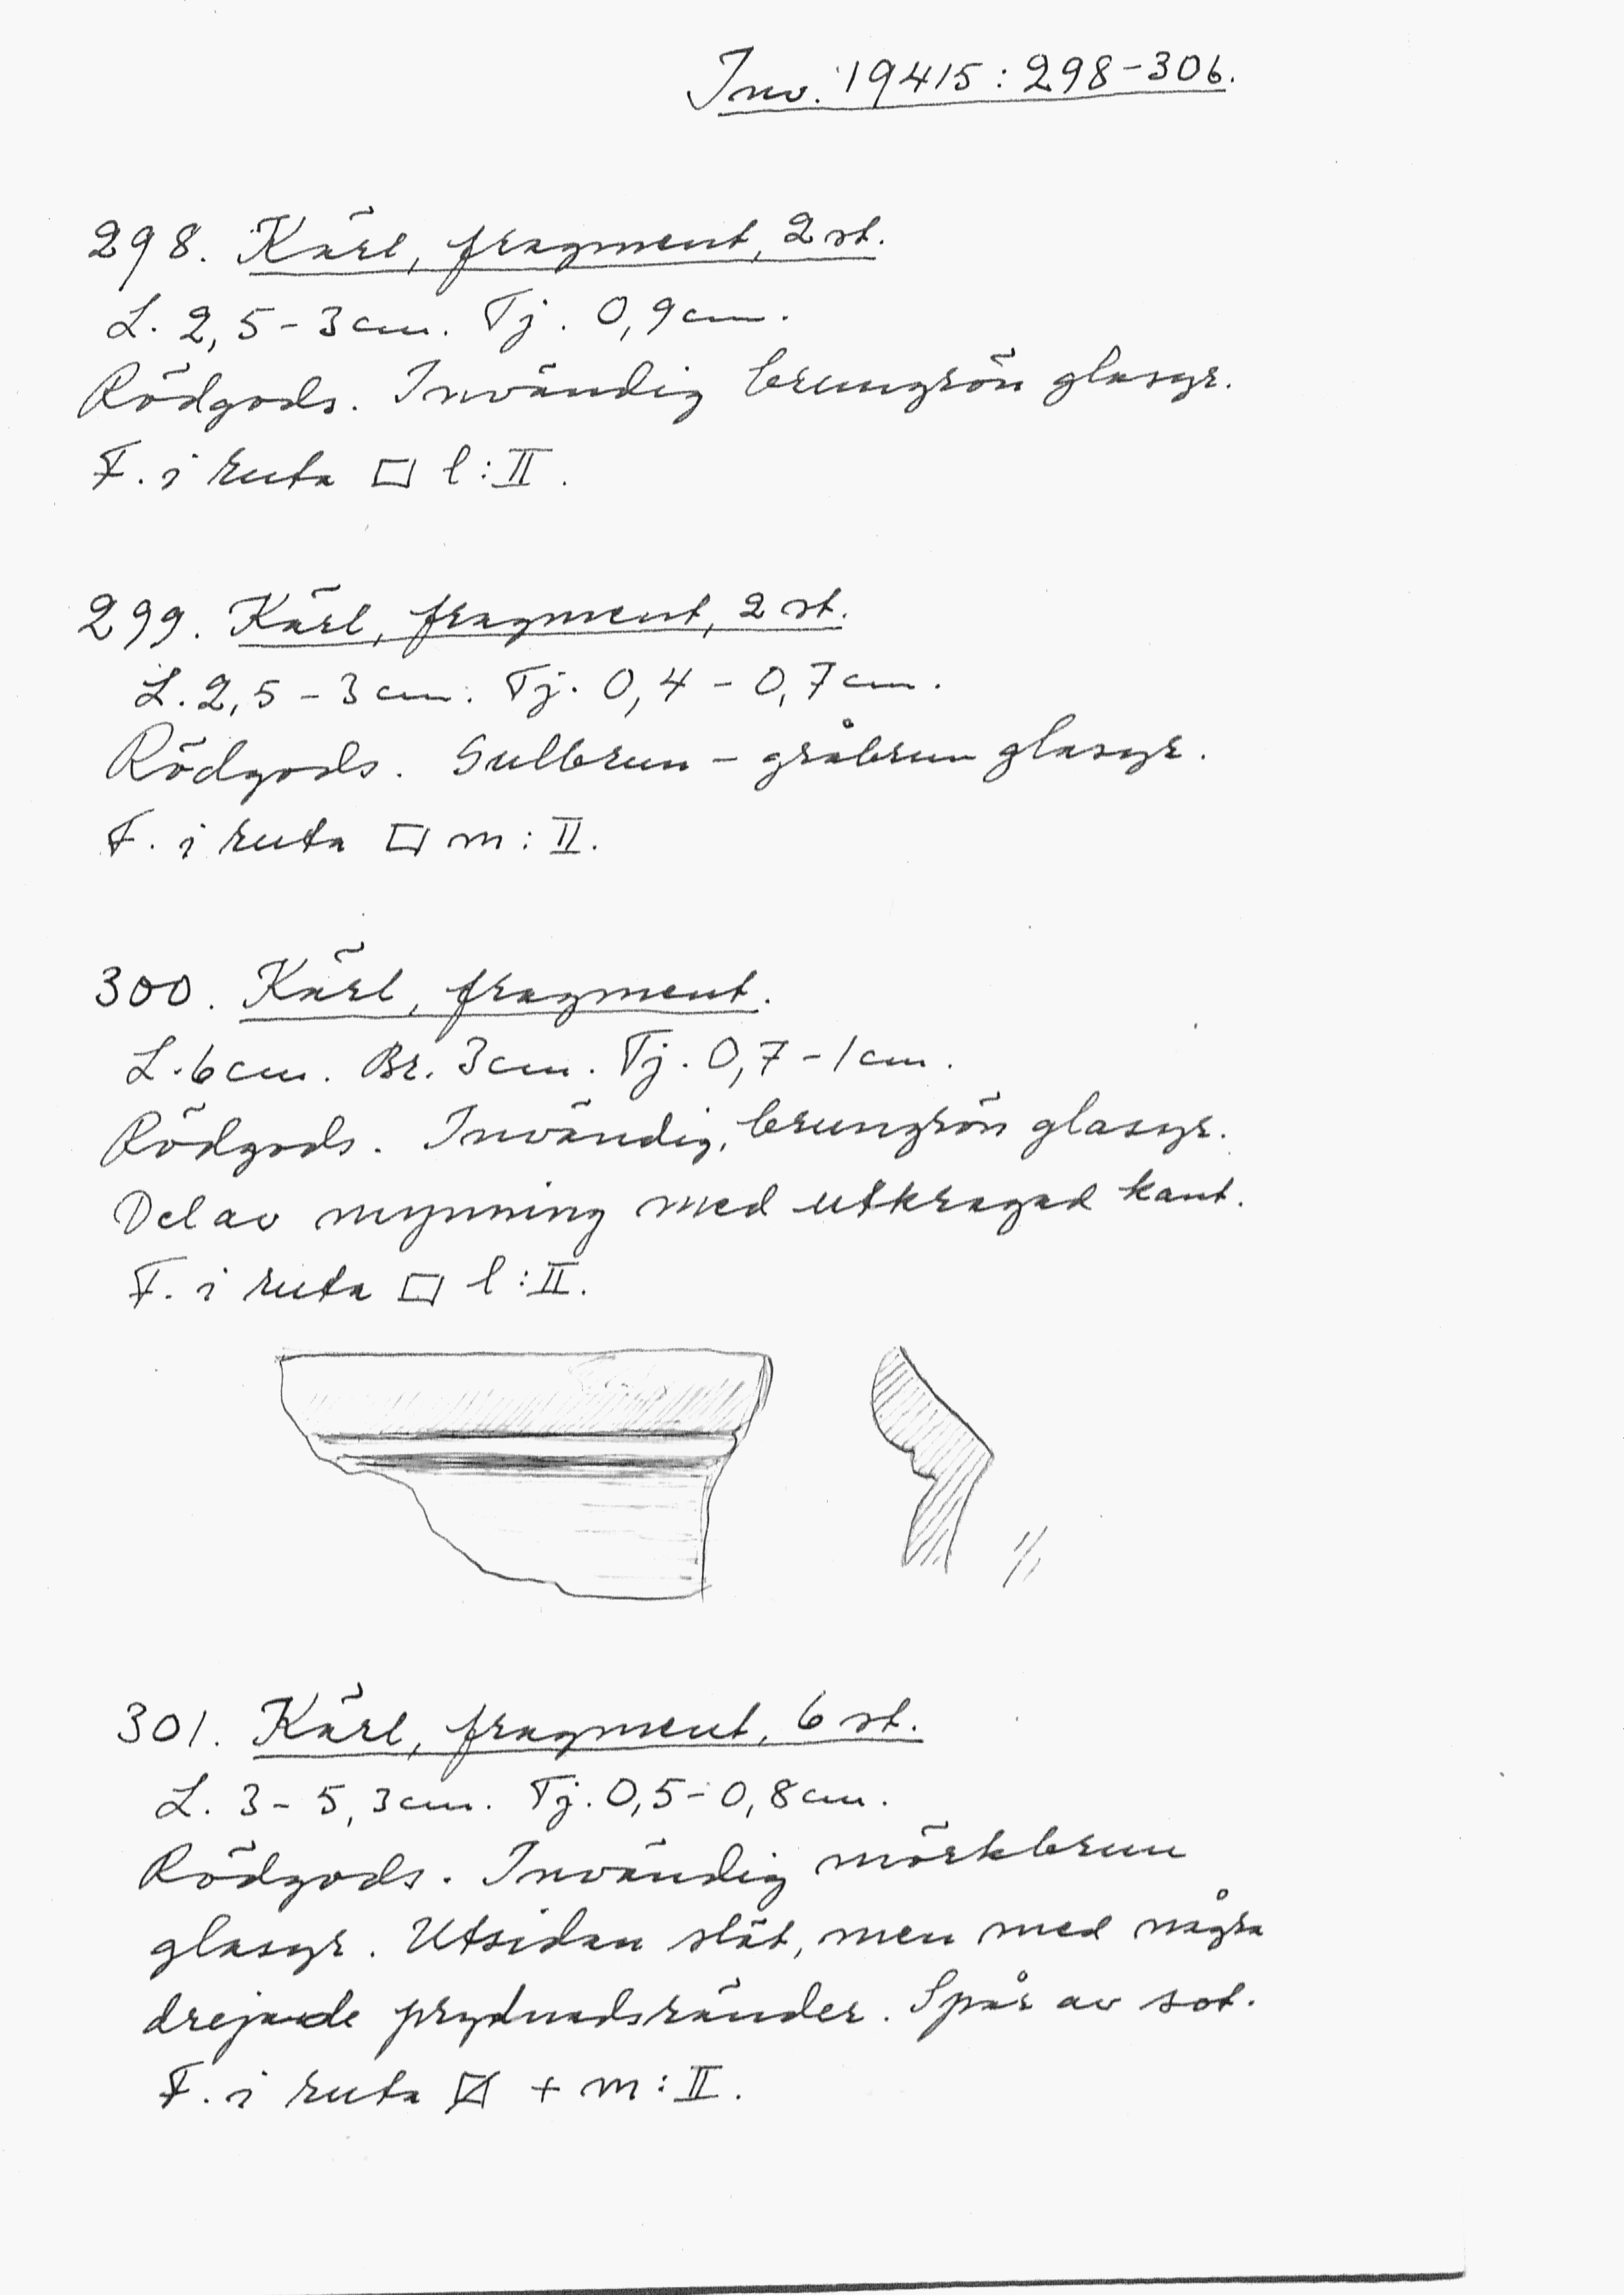 Inv. 19415:298-306.
298. Kärl, fragment, 2 st.
L. 2,5-3 cm. Tj. 0,9 cm.
Rödgods. Invändig brungrön glasyr.
F. i ruta □ l:II.
299. Kärl, fragment, 2 st.
L. 2,5-3 cm. Tj. 0,4-0,7 cm.
Rödgods. Gulbrun-gråbrun glasyr.
F. i ruta □ m:II.
300. Kärl, fragment.
L. 6 cm. Br. 3 cm. Tj. 0,7-1 cm.
Rödgods. Invändig, brungrön glasyr.
Del av mynning med utkragad kant.
F. i ruta □ l:II.
1/1
301. Kärl, fragment, 6 st.
L. 3-5,3 cm. Tj. 0,5-0,8 cm.
Rödgods. Invändig mörkbrun
glasyr. Utsidan slät, men med några
drejade prydnadsränder. Spår av sot.
F. i ruta + m:II.